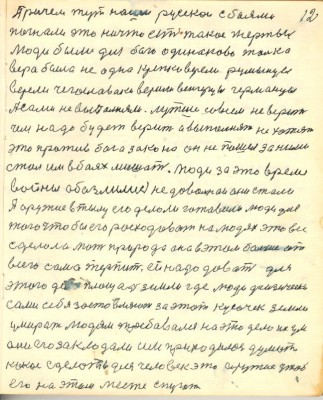 12
Причем тут наши русские с боями
погнали это ничто есть такое жертвы
люди были для бога одинаково только
вера была не одна румынцы
верели чехословаки верили венгры германцы
А сами не выполняли. лутше совсем не верить
чем надо будет верит а выполнять не хотят
это против бога закона он не пошел за ними
стал им в боях мешать. Люди за это время
войны обозлились недовольная они стали
А оружие в тылу его делали готовили люди для
того чтобы его расходовать на людях это все
сделала мать природа она в этом
всего сама терпит, ей надо довать для
этого де площадь земли где люди
сами себя за этот кусочек земли
умирать людям требавался на это дело их ум
они его закладали им приходилося думать
как сделоть для человека это оружие чтоб
его на этом месте спугать